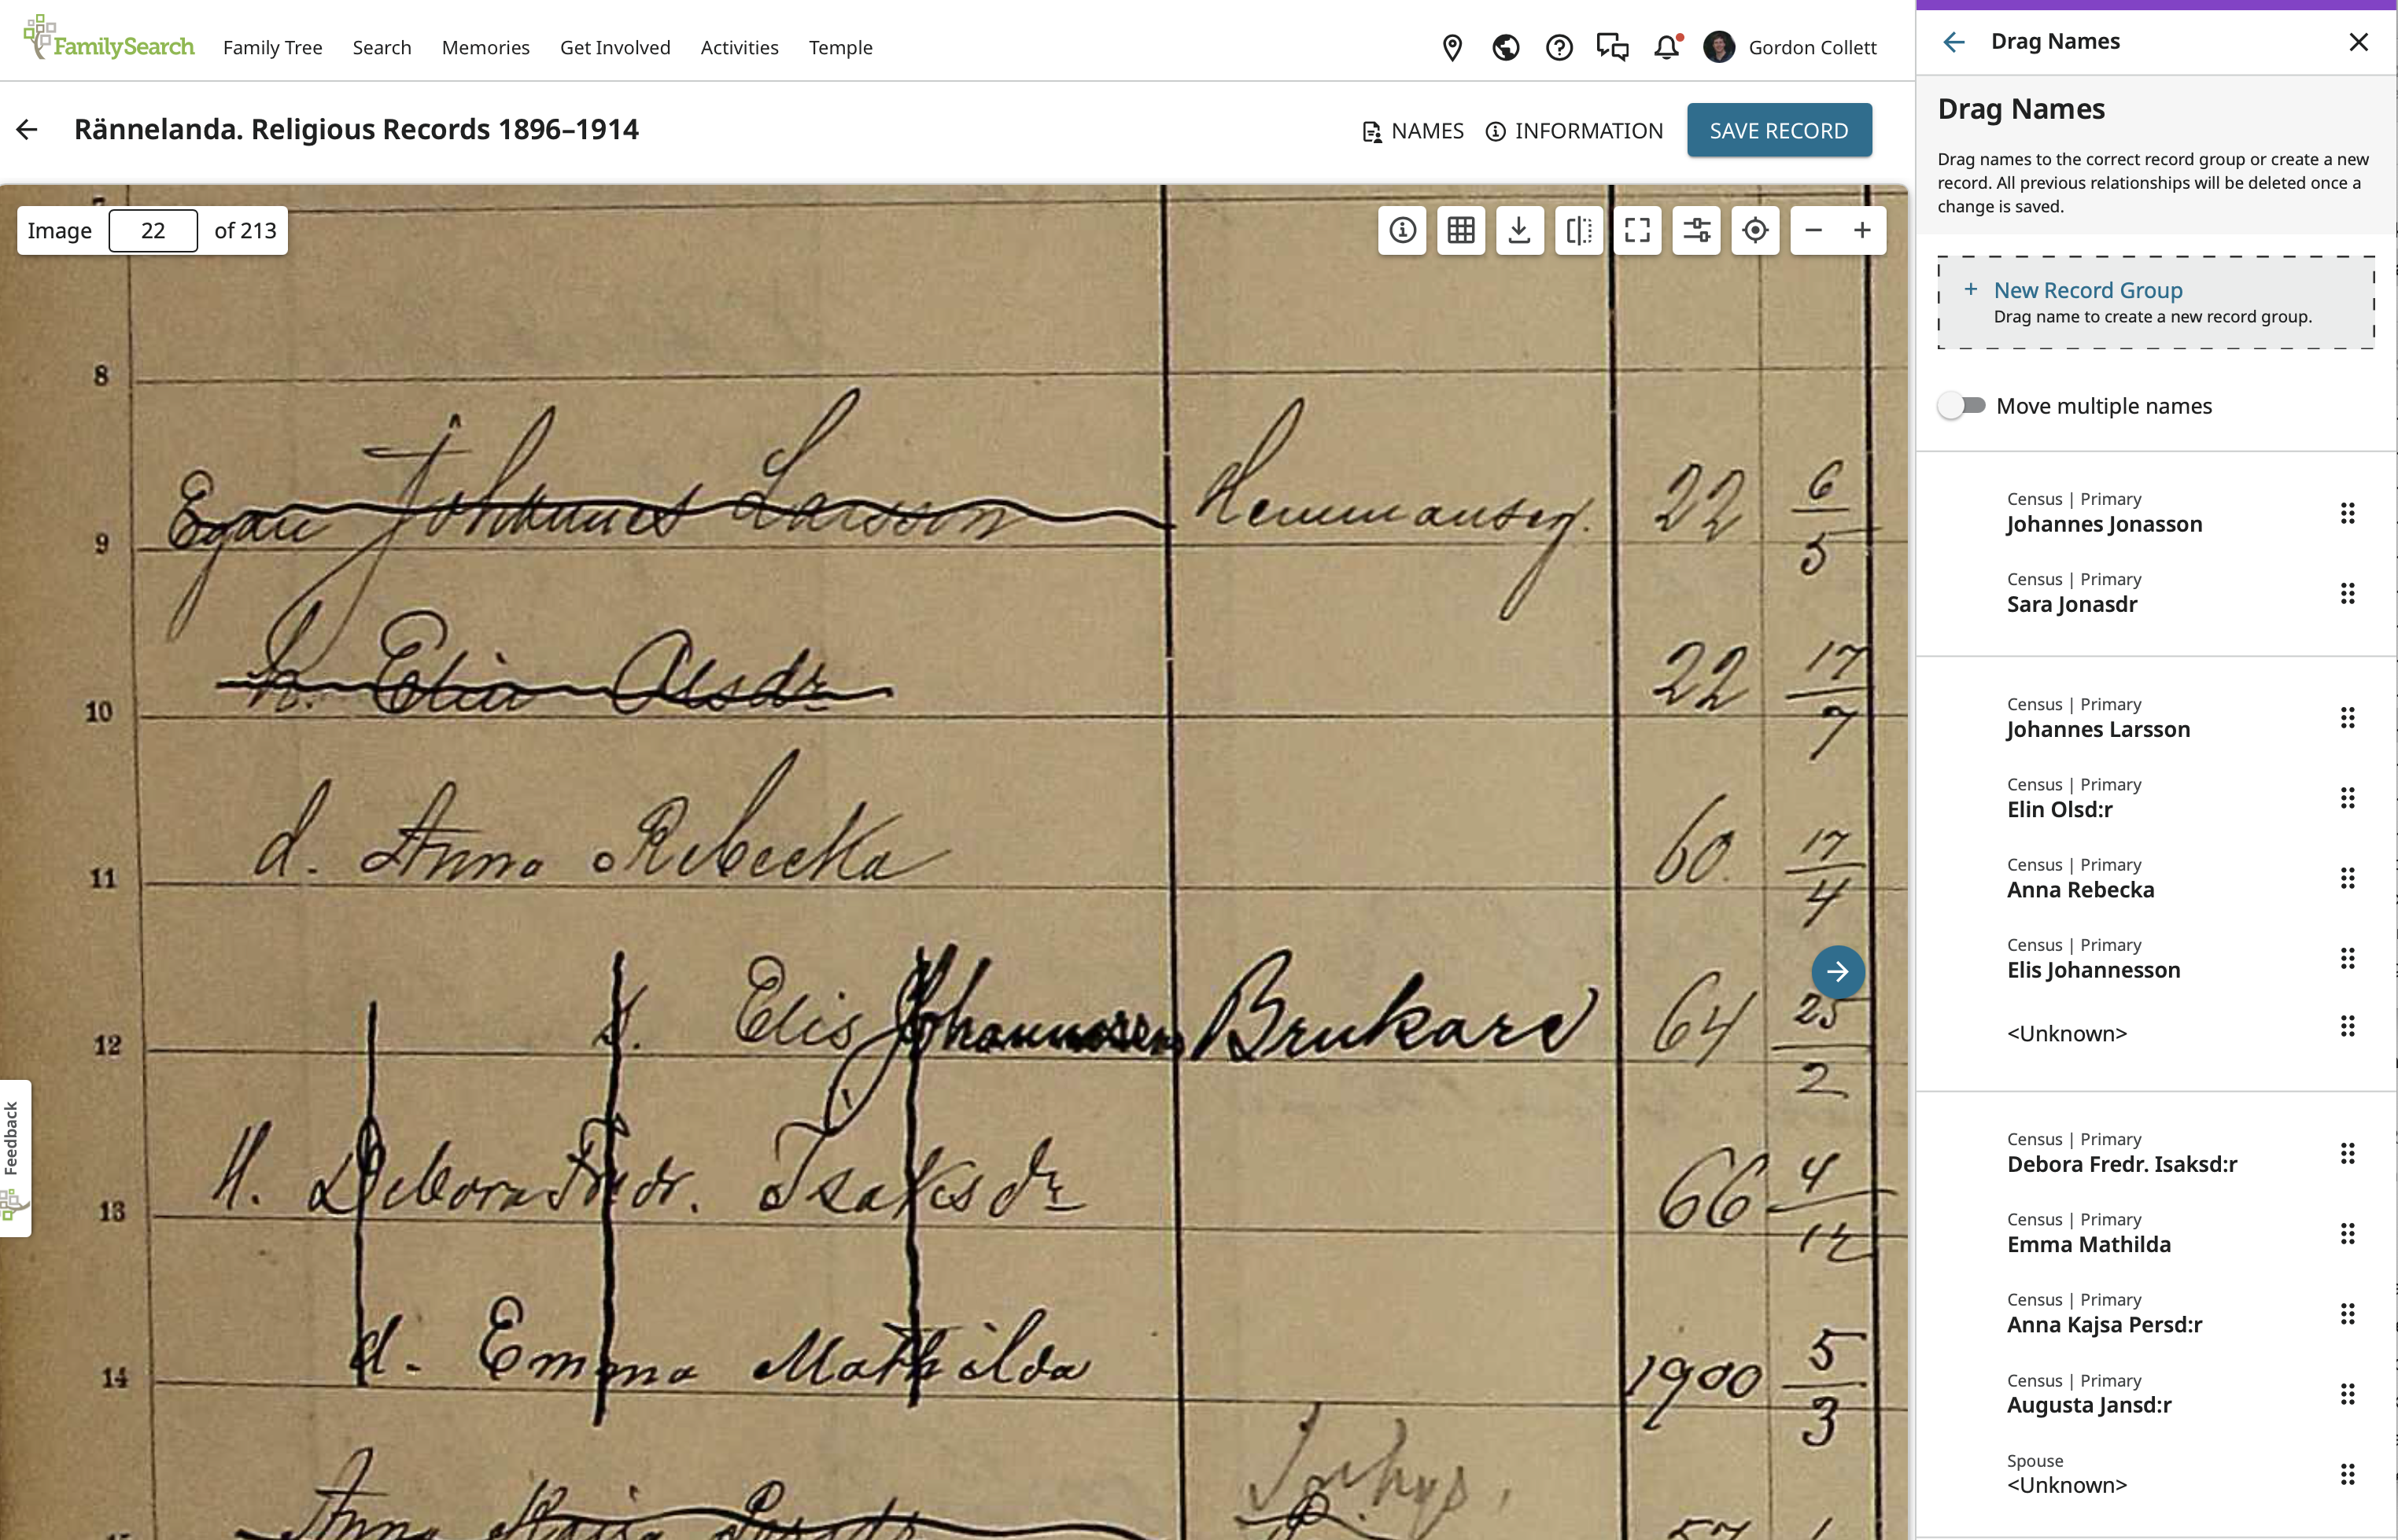 FamilySearch Family Tree Search Memories Get Involved Activities Temple Gordon Collett
Rännelanda. Religious Records 1896–1914 NAMES INFORMATION SAVE RECORD
Image 22 of 213
8
Egau Johannes Larsson Hemmanseg. 22 6/5
9
h. Elin Olsdr 22 17/7
10
d. Anna Rebecka 60. 17/4
11
s. Elis Johannesson Brukare 64 25/2
12
H. Debora Fredr. Isaksdr 66 4/12
13
d. Emma Mathilda 1900 5/3
14
Inhys.
Anna
57
Feedback
Drag Names
Drag Names
Drag names to the correct record group or create a new
record. All previous relationships will be deleted once a
change is saved.
+ New Record Group
Drag name to create a new record group.
Move multiple names
Census | Primary
Johannes Jonasson
Census | Primary
Sara Jonasdr
Census | Primary
Johannes Larsson
Census | Primary
Elin Olsd:r
Census | Primary
Anna Rebecka
Census | Primary
Elis Johannesson
<Unknown>
Census | Primary
Debora Fredr. Isaksd:r
Census | Primary
Emma Mathilda
Census | Primary
Anna Kajsa Persd:r
Census | Primary
Augusta Jansd:r
Spouse
<Unknown>